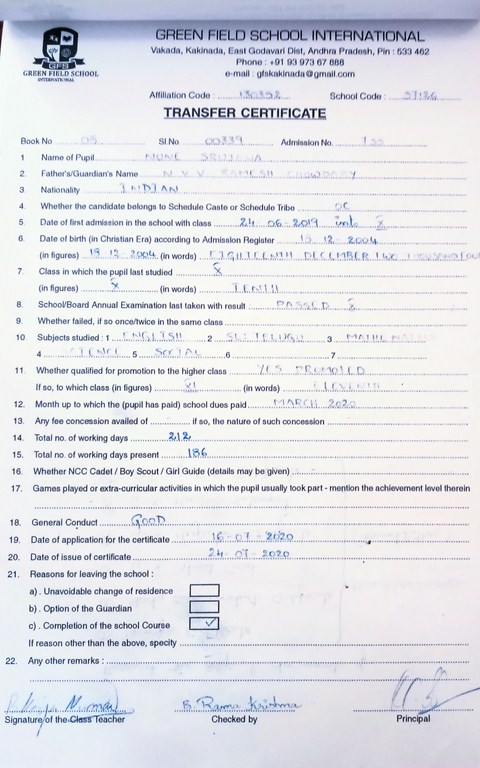 GFS
GREEN FIELD SCHOOL
INTERNATIONAL
GREEN FIELD SCHOOL INTERNATIONAL
Vakada, Kakinada, East Godavari Dist, Andhra Pradesh, Pin : 533 462
Phone : +91 93 973 67 888
e-mail : gfskakinada@gmail.com
Affiliation Code : 130352 School Code : 57126
TRANSFER CERTIFICATE
Book No 05 Sl.No 00339 Admission No.
1 Name of Pupil NUNE SRUJANA
2. Father's/Guardian's Name N V V RAMESH CHOWDARY
3. Nationality INDIAN
4. Whether the candidate belongs to Schedule Caste or Schedule Tribe OC
5. Date of first admission in the school with class 24-06-2019 into X
6. Date of birth (in Christian Era) according to Admission Register 2004
(in figures) 12 2004 (in words) EIGHTEENTH DECEMBER TWO THOUSAND FOUR
7. Class in which the pupil last studied X
(in figures) X (in words) TENTH
8. School/Board Annual Examination last taken with result PASSED X
9. Whether failed, if so once/twice in the same class
10. Subjects studied : 1 ENGLISH 2 SL: TELUGU 3 MATHEMATICS
4 SCIENCE 5 SOCIAL 6 7
11. Whether qualified for promotion to the higher class YES PROMOTED
If so, to which class (in figures) XI (in words) ELEVENTH
12. Month up to which the (pupil has paid) school dues paid MARCH 2020
13. Any fee concession availed of if so, the nature of such concession
14. Total no. of working days 212
15. Total no. of working days present 186
16. Whether NCC Cadet / Boy Scout / Girl Guide (details may be given)
17. Games played or extra-curricular activities in which the pupil usually took part - mention the achievement level therein
18. General Conduct GOOD
19. Date of application for the certificate 16-07-2020
20. Date of issue of certificate 24-07-2020
21. Reasons for leaving the school :
a) . Unavoidable change of residence
b) . Option of the Guardian
c) . Completion of the school Course ✓
If reason other than the above, specify
22. Any other remarks :
B. Rama Krishna
Signature of the Class Teacher Checked by Principal